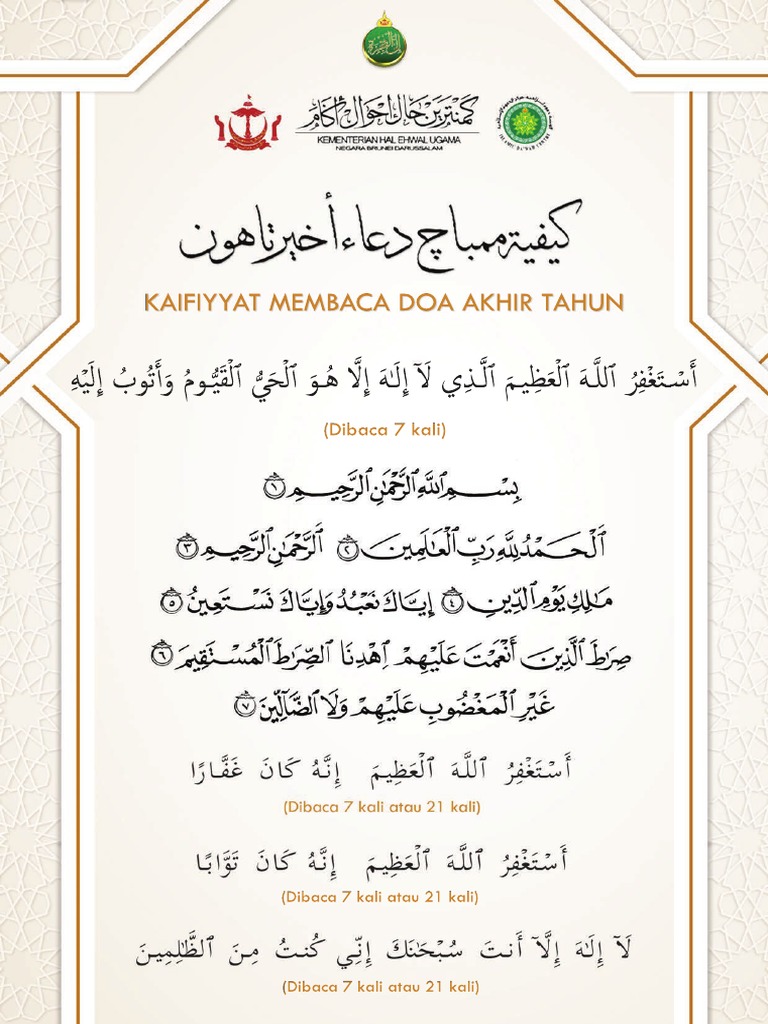 كمنترين حال احوال اݢام
KEMENTERIAN HAL EHWAL UGAMA
NEGARA BRUNEI DARUSSALAM
كيفية ممباچ دعاء أخير تاهون
KAIFIYYAT MEMBACA DOA AKHIR TAHUN
أَسْتَغْفِرُ ٱللَّهَ ٱلْعَظِيمَ ٱلَّذِي لَآ إِلَٰهَ إِلَّا هُوَ ٱلْحَيُّ ٱلْقَيُّومُ وَأَتُوبُ إِلَيْهِ
(Dibaca 7 kali)
بِسْمِ ٱللَّهِ ٱلرَّحْمَٰنِ ٱلرَّحِيمِ ١
ٱلْحَمْدُ لِلَّهِ رَبِّ ٱلْعَالَمِينَ ٢ ٱلرَّحْمَٰنِ ٱلرَّحِيمِ ٣
مَٰلِكِ يَوْمِ ٱلدِّينِ ٤ إِيَّاكَ نَعْبُدُ وَإِيَّاكَ نَسْتَعِينُ ٥
صِرَٰطَ ٱلَّذِينَ أَنْعَمْتَ عَلَيْهِمْ اِهْدِنَا ٱلصِّرَٰطَ ٱلْمُسْتَقِيمَ ٦
غَيْرِ ٱلْمَغْضُوبِ عَلَيْهِمْ وَلَا ٱلضَّآلِّينَ ٧
أَسْتَغْفِرُ ٱللَّهَ ٱلْعَظِيمَ إِنَّهُ كَانَ غَفَّارًا
(Dibaca 7 kali atau 21 kali)
أَسْتَغْفِرُ ٱللَّهَ ٱلْعَظِيمَ إِنَّهُ كَانَ تَوَّابًا
(Dibaca 7 kali atau 21 kali)
لَآ إِلَٰهَ إِلَّآ أَنتَ سُبْحَٰنَكَ إِنِّي كُنتُ مِنَ ٱلظَّٰلِمِينَ
(Dibaca 7 kali atau 21 kali)